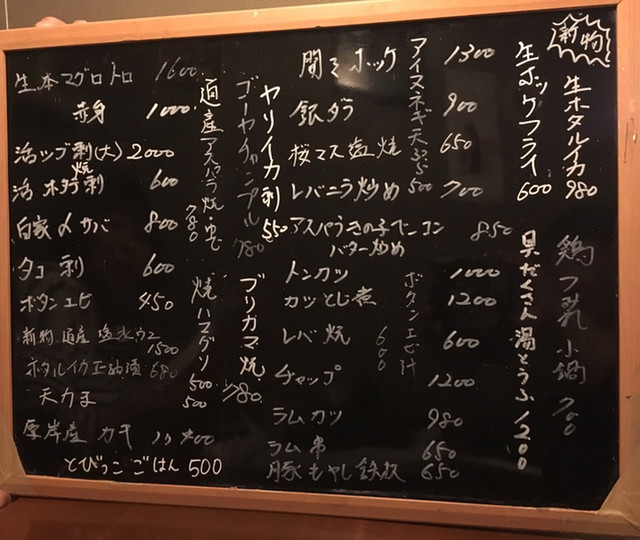 新物
生ホタルイカ 980
生ホッケフライ 600
鶏つ乳小鍋 700
具だくさん湯とうふ 1200
開きホッケ 1300
アイヌネギ天ぷら 500
銀ダラ 900
桜マス塩焼 650
レバニラ炒め 700
アスパラきの子ベーコン
バター炒め 850
トンカツ 1000
カツとじ煮 1200
ボタンエビ汁 600
レバ焼 600
チャップ 1200
ラムカツ 980
ラム串 650
豚もやし鉄板 650
ヤリイカ刺 550
ゴーヤチャンプル 780
道産アスパラ焼・ゆで 780
ブリガマ焼 780
焼ハマグリ 500
生本マグロトロ 1600
赤身 1000
活ツブ刺(大) 2000
活ホタテ刺 焼 600
自家〆サバ 800
タコ刺 600
ボタンエビ 450
新物道産塩水ウニ
1500
ホタルイカ正油漬 680
天カま 500
厚岸産カキ 1ヶ400
とびっこごはん 500